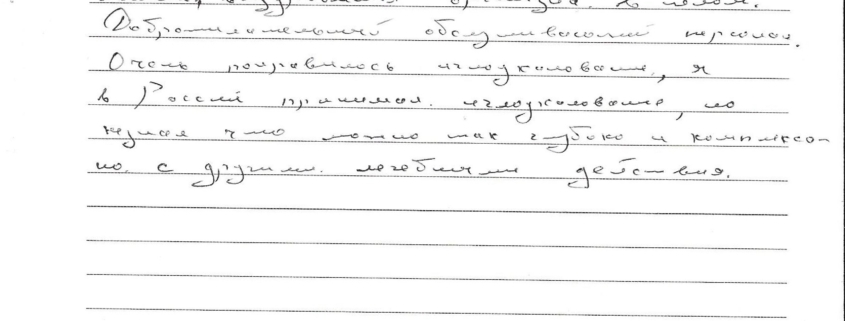 в целом.
Доброжелательный обслуживающий персонал.
Очень понравилось иглоукаловоние, я
в России принимал. иглоукаловоние, но
незнал что можно так глубоко и комплексо-
но. с другими. лечебними действия.